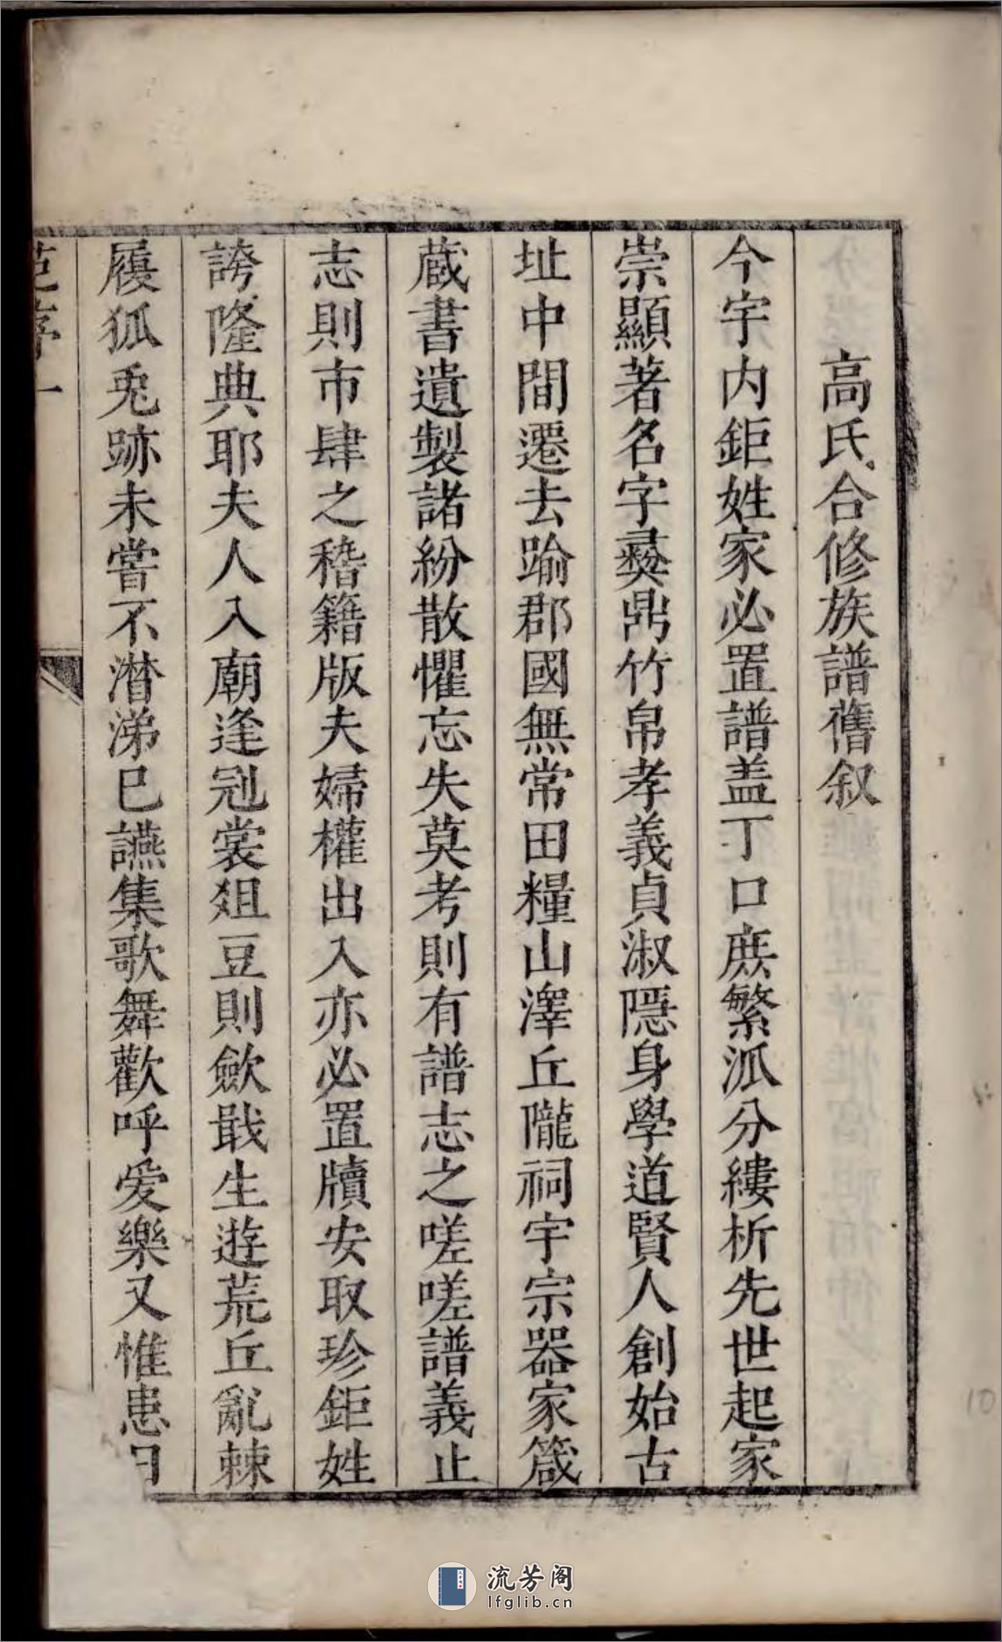 高氏合修族譜舊叙
今宇内鉅姓家必置譜盖丁口庶繁泒分縷析先世起家
崇顯著名字彝鼎竹帛孝義貞淑隱身學道賢人創始古
址中間遷去踰郡國無常田糧山澤丘隴祠宇宗器家箴
蔵書遺製諸紛散懼忘失莫考則有譜志之嗟嗟譜義止
志則市肆之稽籍版夫婦權出入亦必置牘安取珍鉅姓
誇隆典耶夫人入廟逢冠裳俎豆則歛戢生遊荒丘亂棘
履狐兎跡未嘗不潸涕已讌集歌舞歡呼愛樂又惟患日
范序一
10
流芳阁
lfglib.cn